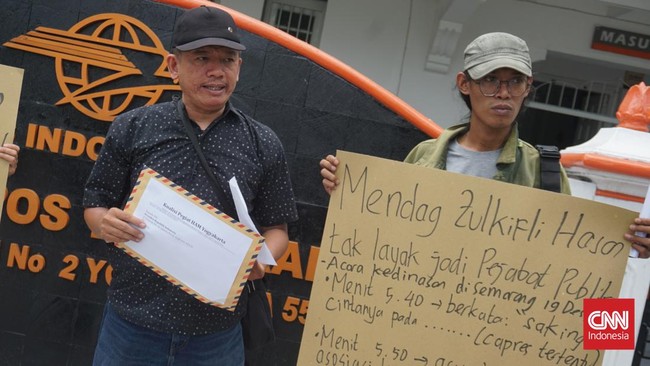 MASU
INDO
OS
No 2 YO
A 55
Koalisi Pegiat HAM Yogyakarta
Mendag Zulkifli Hasan
tak layak jadi Pejabat Publi
- Acara kedinasan di Semarang 19 De
• Menit 5.40 → berkata: saking
cintanya pada ....... (capres tertent
• Menit 5.50 →
asosiasi
CNN
Indonesia